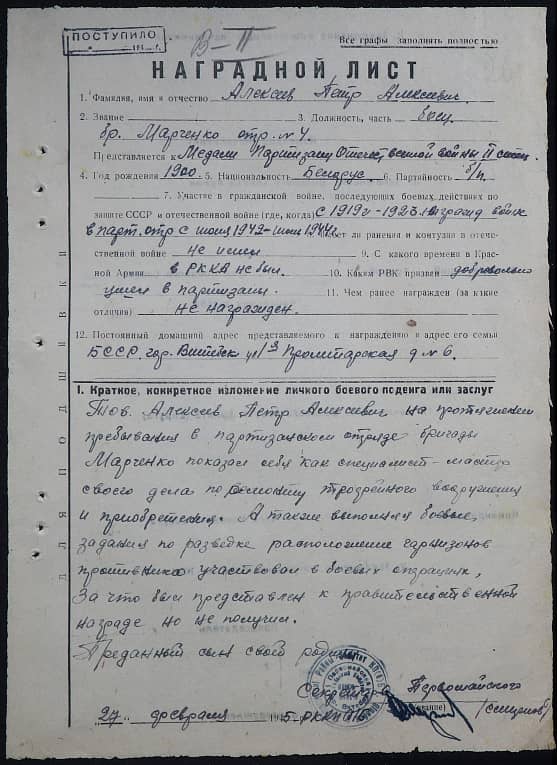 ПОСТУПИЛО
В-II
Все графы заполнять полностью
НАГРАДНОЙ ЛИСТ
1. Фамилия, имя и отчество Алексеев Петр Алексеевич
2. Звание 3. Должность, часть боец
бр. Марченко отр. №4.
Представляется к Медали Партизану Отечественной войны II степ.
4. Год рождения 1900 5. Национальность Беларус 6. Партийность б/п.
7. Участие в гражданской войне, последующих боевых действиях по
защите СССР и отечественной войне (где, когда) с 1919 г - 1923 войск
в парт. отр с июня 1942 - июнь 1944 г. Имеет ли ранения и контузии в отече-
ственной войне не имел 9. С какого времени в Крас-
ной Армии в РККА не был. 10. Каким РВК призван добровольно
ушел в партизаны. 11. Чем ранее награжден (за какие
отличия) не награжден.
12. Постоянный домашний адрес представляемого к награждению и адрес его семьи
БССР, гор. Витебск ул 1я Пролетарская д №6.
I. Краткое, конкретное изложение личного боевого подвига или заслуг
Тов. Алексеев Петр Алексеевич на протяжении
пребывания в партизанском отряде бригады
Марченко показал себя как специалист-мастер
своего дела по ремонту вооружения
и приобретения. А также выполнял боевые
задания по разведке расположение гарнизонов
противника участвовал в боевых операциях,
За что был представлен к правительственной
награде но не получил.
Преданный сын своей родины
Секретарь Первомайского
(звание) (Семенов)
27 февраля 194 5 РК КП(б)Б
ДЛЯ ПОДШИВКИ